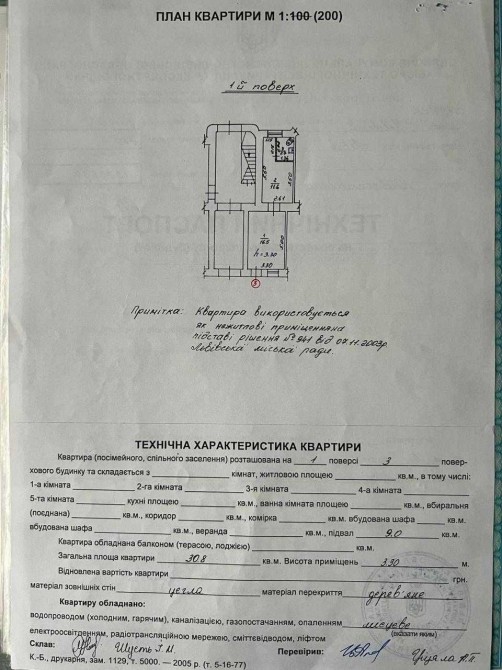 ПЛАН КВАРТИРИ М 1:100 (200)
1й поверх
h=3.30
3.30
Примітка: Квартира використовується
як нежитлові приміщення на
підставі рішення № 941 від 07.11.2003р
Львівська міська рада.
ТЕХНІЧНА ХАРАКТЕРИСТИКА КВАРТИРИ
Квартира (посімейного, спільного заселення) розташована на 1 поверсі 3 повер-
хового будинку та складається з кімнат, житловою площею кв.м., в тому числі:
1-а кімната 2-га кімната 3-я кімната 4-а кімната
5-та кімната кухні площею кв.м., ванна кімната площею кв.м., вбиральня
(поєднана) кв.м., коридор кв.м., комірка кв.м. вбудована шафа кв.м.
вбудована шафа кв.м., веранда кв.м., підвал 9.0 кв.м.
Квартира обладнана балконом (терасою, лоджією) кв.м.
Загальна площа квартири 30.8 кв.м. Висота приміщень 3.30 м.
Відновлена вартість квартири грн.
матеріал зовнішніх стін цегла матеріал перекриття дерев'яне
Квартиру обладнано:
водопроводом (холодним, гарячим), каналізацією, газопостачанням, опаленням місцеве
(вказати яким)
електроосвітленням, радіотрансляційною мережею, сміттєвідводом, ліфтом
Склав: Шусть І.М. Перевірив:
К.-Б., друкарня, зам. 1129, т. 5000. — 2005 р. (т. 5-16-77)